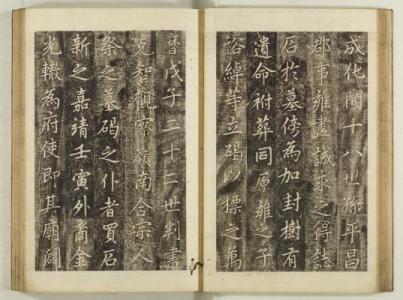 成化閒十八世孫平昌
郡事雍盡誠求之得誌
石於墓傍為加封樹有
遺命祔葬同原雍之子
裕綽等立碣以標之萬
曆戊子二十二世判書
克智觀察嶺南合宗人
祭之墓碣之仆者買石
新之嘉靖壬寅外裔金
光轍為府使即其廟